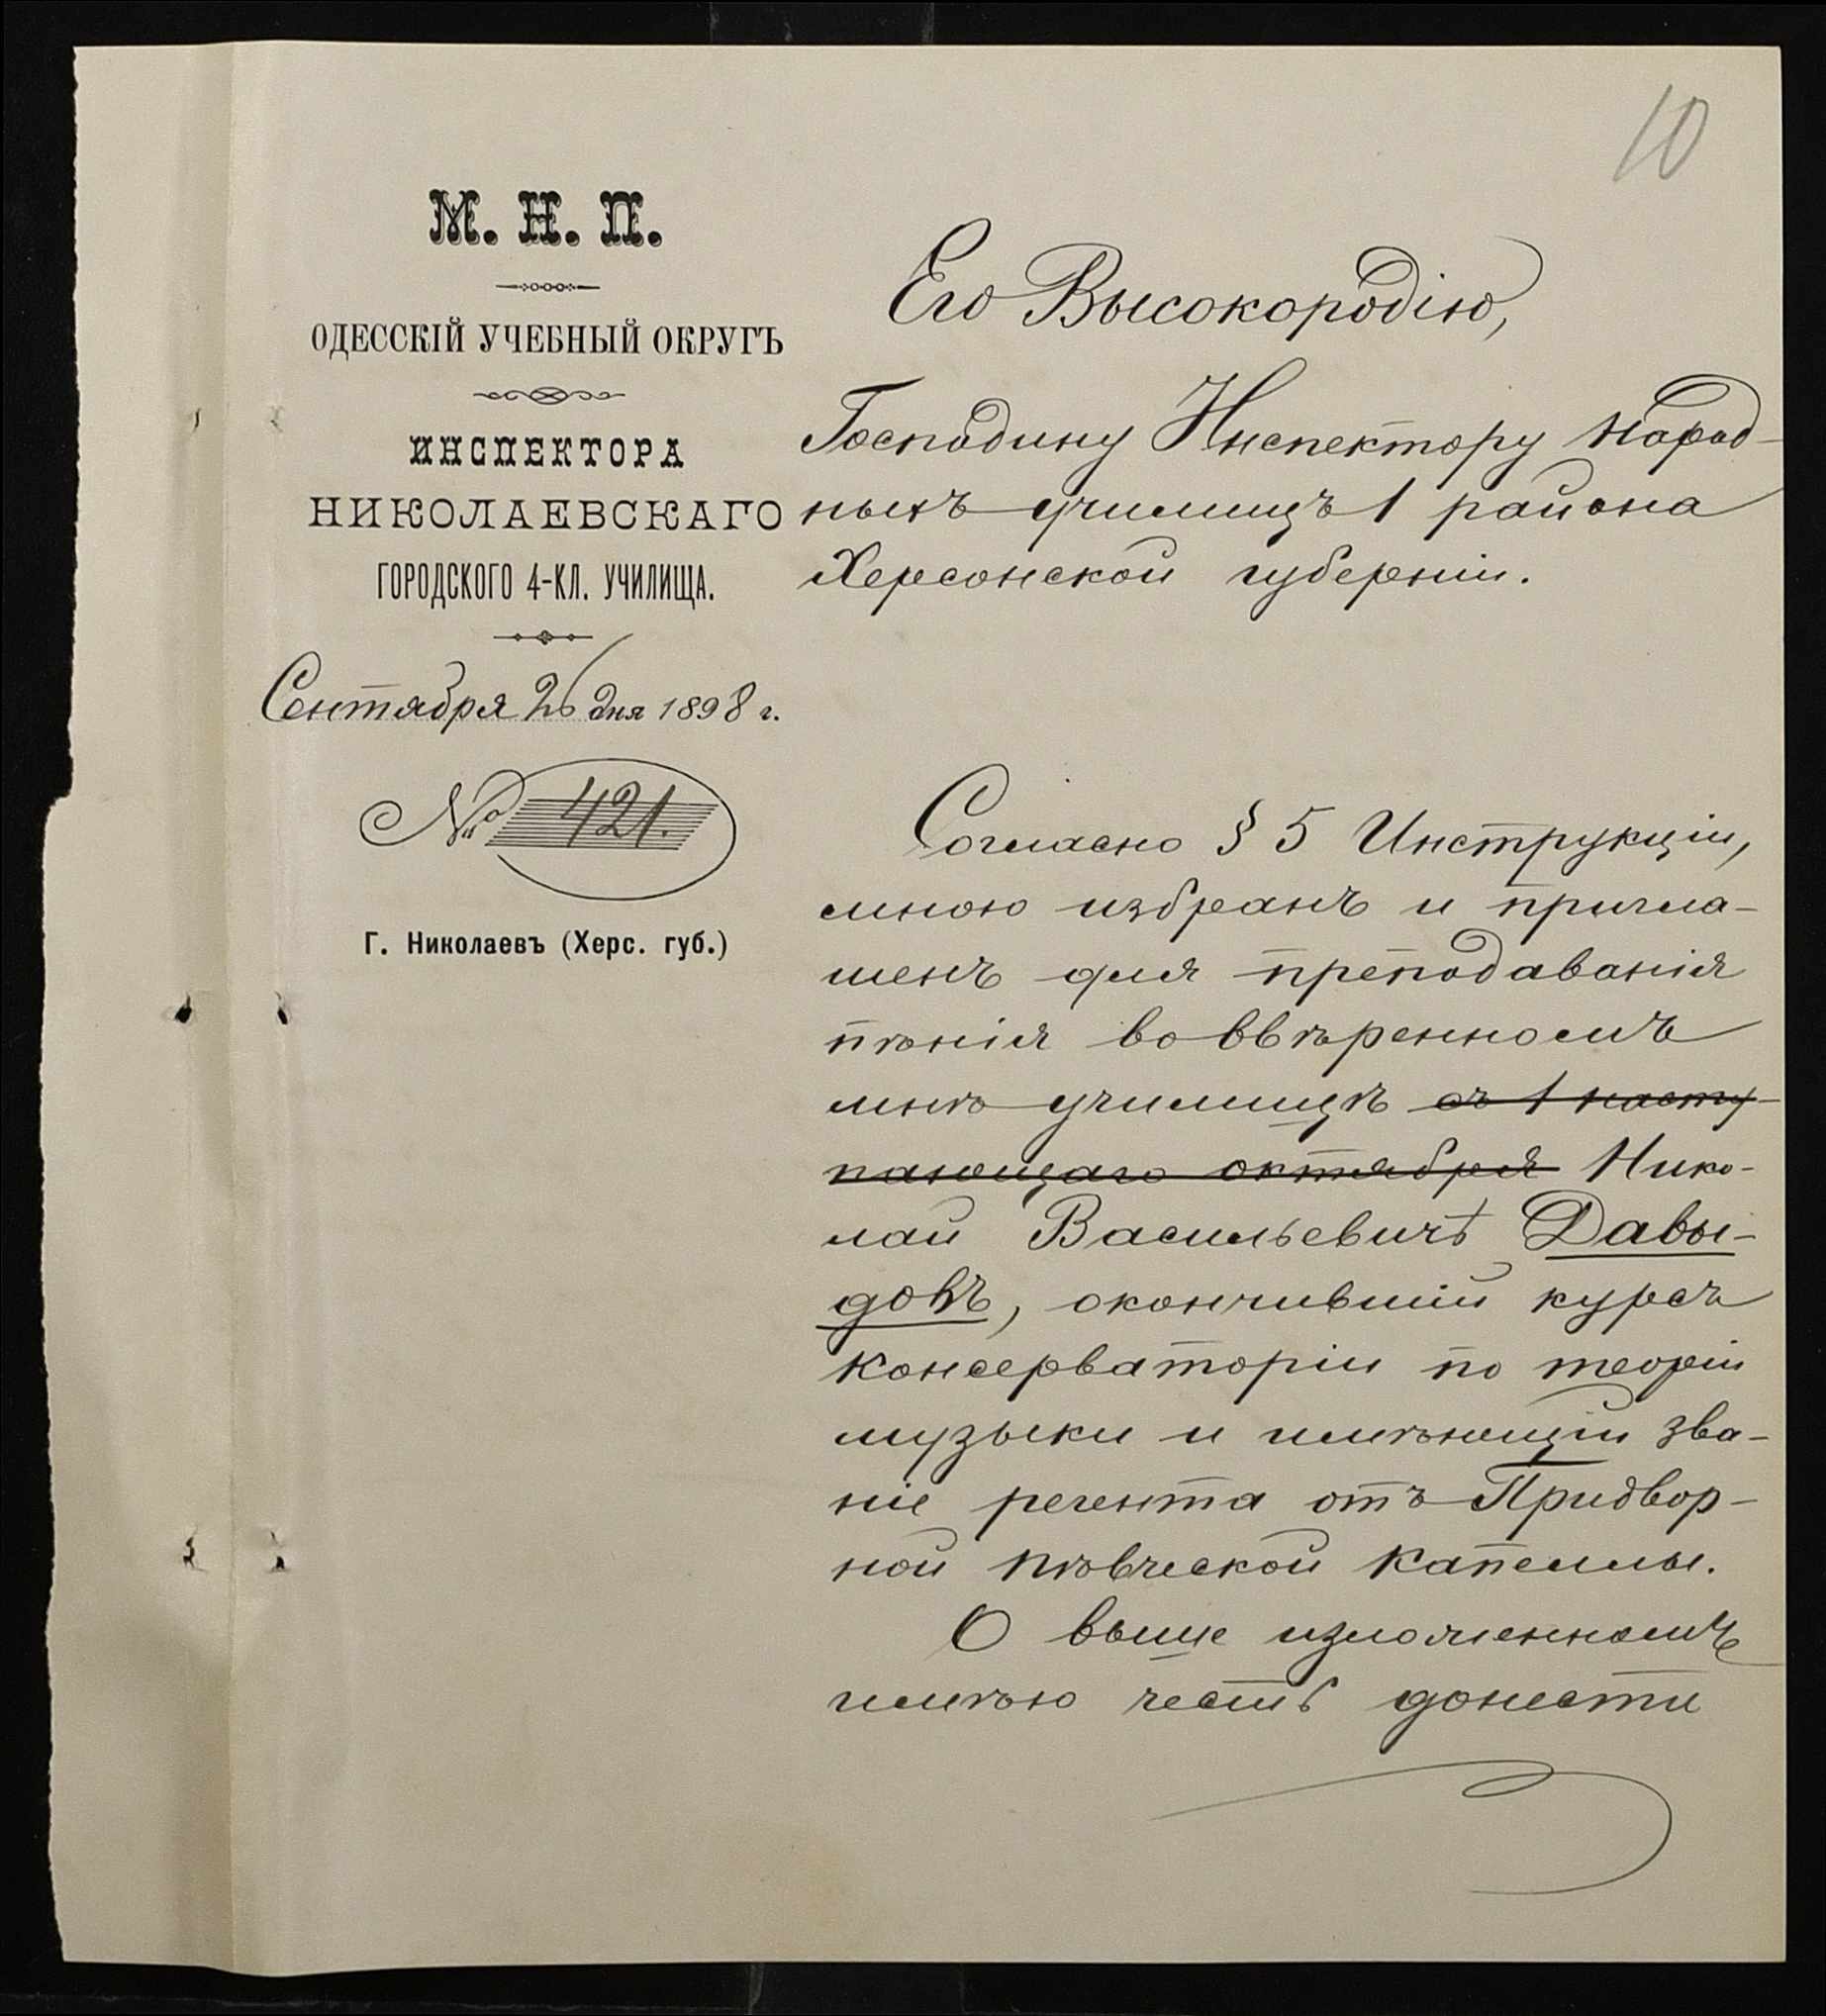 10
М. Н. П.
ОДЕССКІЙ УЧЕБНЫЙ ОКРУГЪ
ИНСПЕКТОРА
НИКОЛАЕВСКАГО
ГОРОДСКОГО 4-КЛ. УЧИЛИЩА.
Сентября 26 дня 1898 г.
№ 421.
Г. Николаевъ (Херс. губ.)
Его Высокородію,
Господину Инспектору Народ-
ныхъ училищъ 1 района
Херсонской губерніи.
Согласно § 5 Инструкціи,
мною избранъ и пригла-
шенъ для преподаванія
пѣнія во ввѣренномъ
мнѣ училищѣ съ 1 насту-
пающаго октября Нико-
лай Васильевичъ Давы-
довъ, окончившій курсъ
Консерваторіи по теоріи
музыки и имѣющій зва-
ніе регента отъ Придвор-
ной пѣвческой Капеллы.
О выше изложенномъ
имѣю честь донести